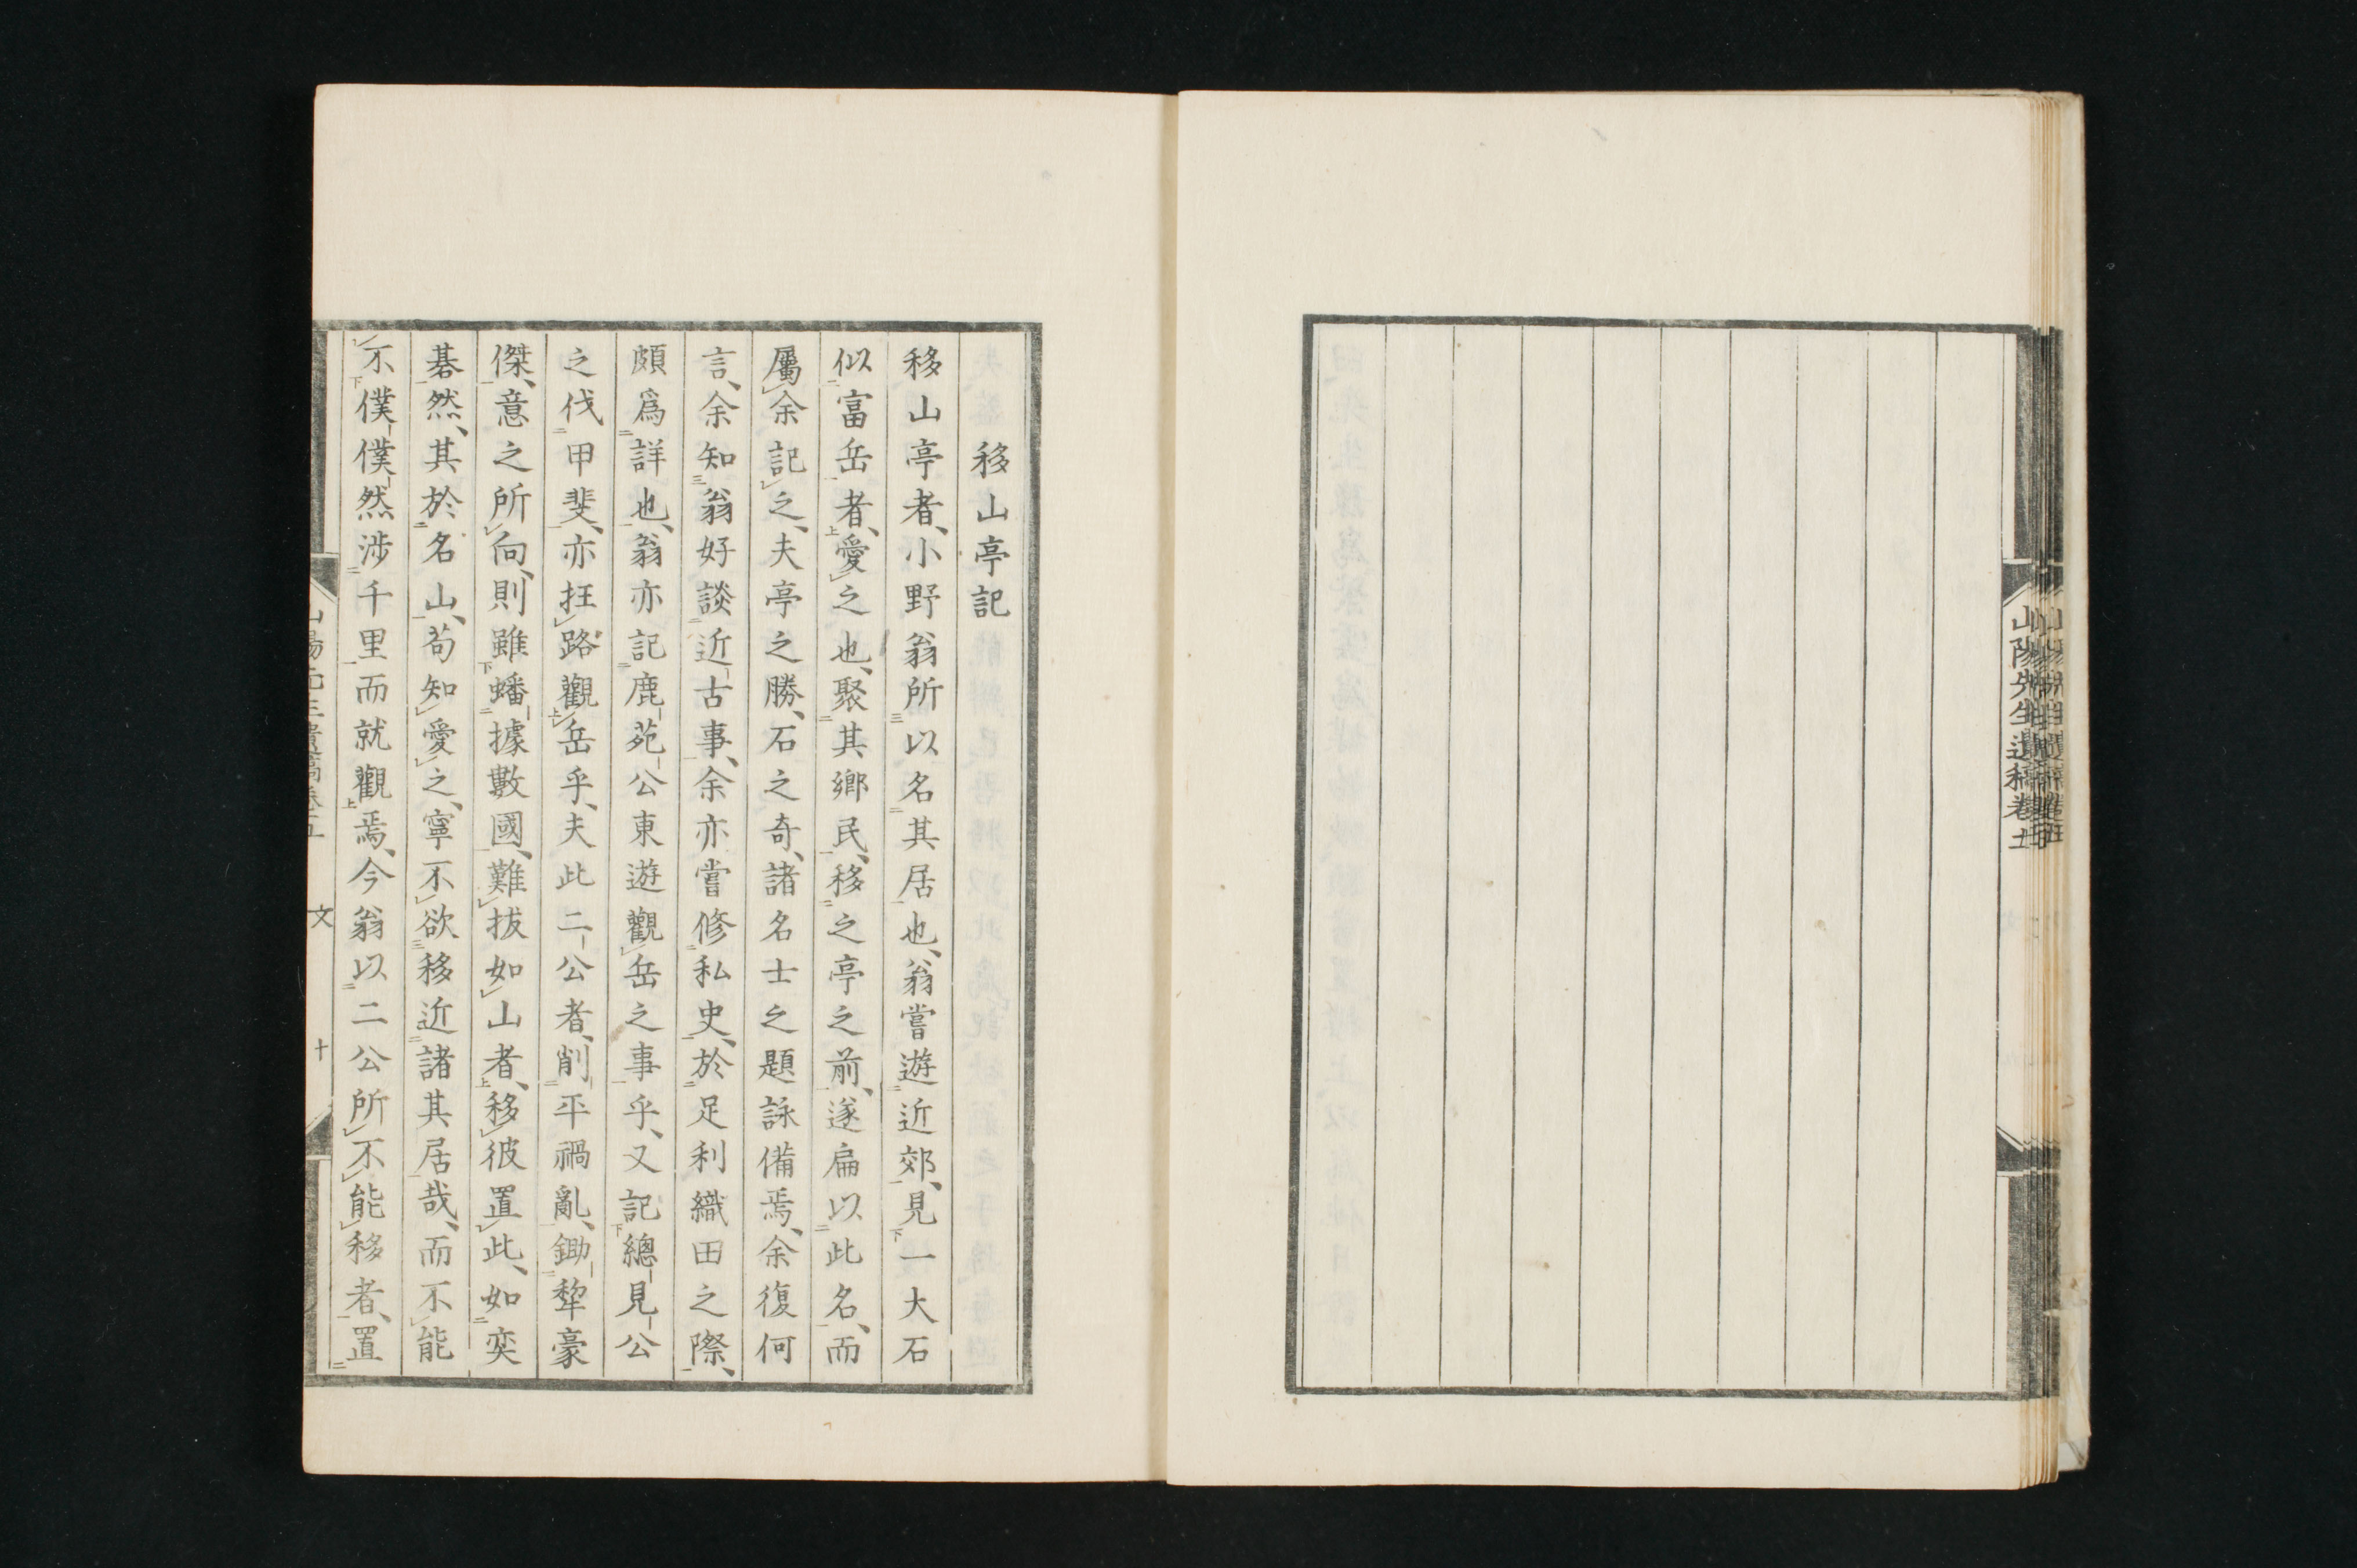 山陽先生遺稿卷
移山亭記
移山亭者、小野翁所以名其居也、翁嘗遊近郊、見一大石
似富岳者、愛之也、聚其鄉民、移之亭之前、遂扁以此名、而
屬余記之、夫亭之勝、石之奇、諸名士之題詠備焉、余復何
言、余知翁好談近古事、余亦嘗修私史、於足利織田之際、
頗爲詳也、翁亦記鹿苑公東遊觀岳之事乎、又記總見公
之伐甲斐、亦抂路觀岳乎、夫此二公者、削平禍亂、鋤犂豪
傑、意之所向、則雖蟠據數國、難拔如山者、移彼置此、如奕
碁然、其於名山、苟知愛之、寧不欲移近諸其居哉、而不能
不僕僕然涉千里而就觀焉、今翁以二公所不能移者、置
文
十